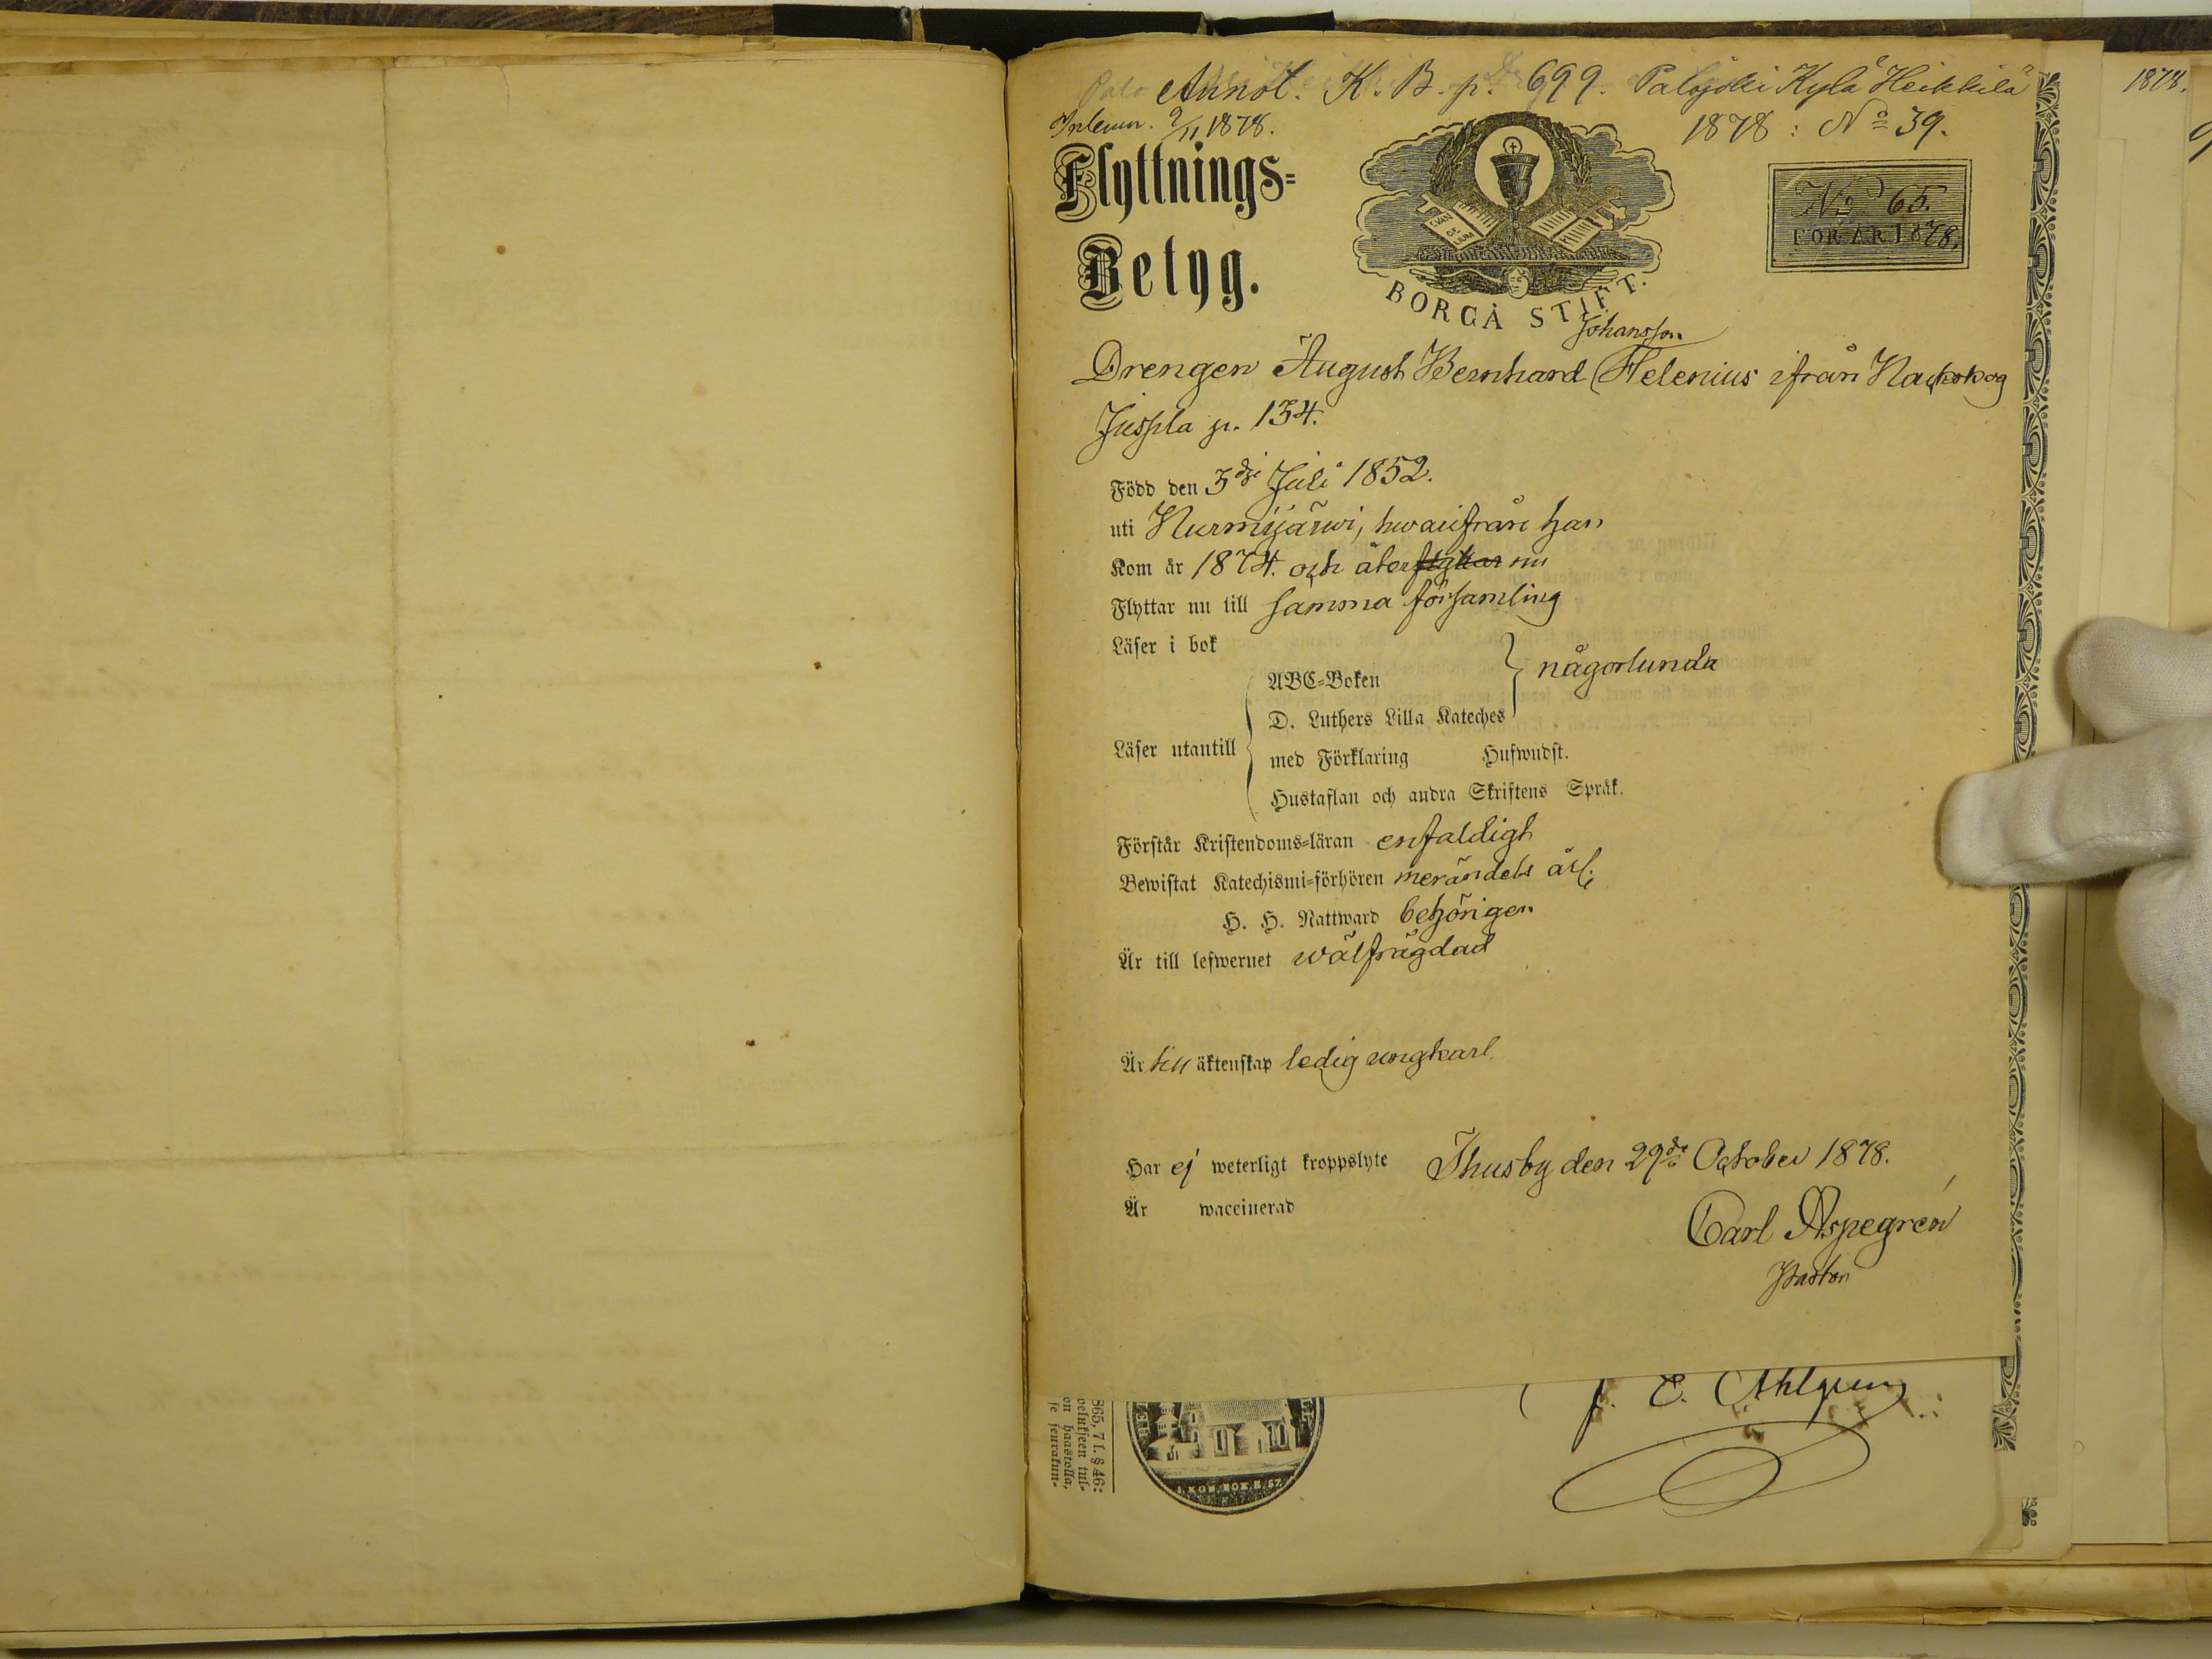 Annot. K. B. p. 699. Palojoki Kylä Heikkilä
Inlemn. 9/11 1878.
1878: No 39.
1878.
Flyttnings=
Betyg.
EVAN GE LIUM
BORGÅ STIFT.
No 65.
FÖR ÅR 1878.
Johansson
Drengen August Bernhard (Helenius ifrån Nackskog
Juspla p. 134.
Född den 3dje Juli 1852.
uti Nurmijärwi, hwarifrån han
Kom år 1874. och återflyttar nu
Flyttar nu till samma församling
Läser i bok
ABC=Boken
någorlunda
D. Luthers Lilla Kateches
Läser utantill
med Förklaring Hufwudst.
Hustaflan och andra Skriftens Språk.
Förstår Kristendoms=läran enfaldigt
Bewistat Katechismi=förhören merändels årl.
H. H. Nattward behörigen
Är till lefwernet wälfrägdad
Är till äktenskap ledig ungkarl.
Har ej weterligt kroppslyte Thusby den 29de October 1878.
Är waccinerad
Carl Aspegrén
Pastor
865, 7 l. § 46:
on haastolla,
se seurakun-
I. KON. BOK. 8. 57